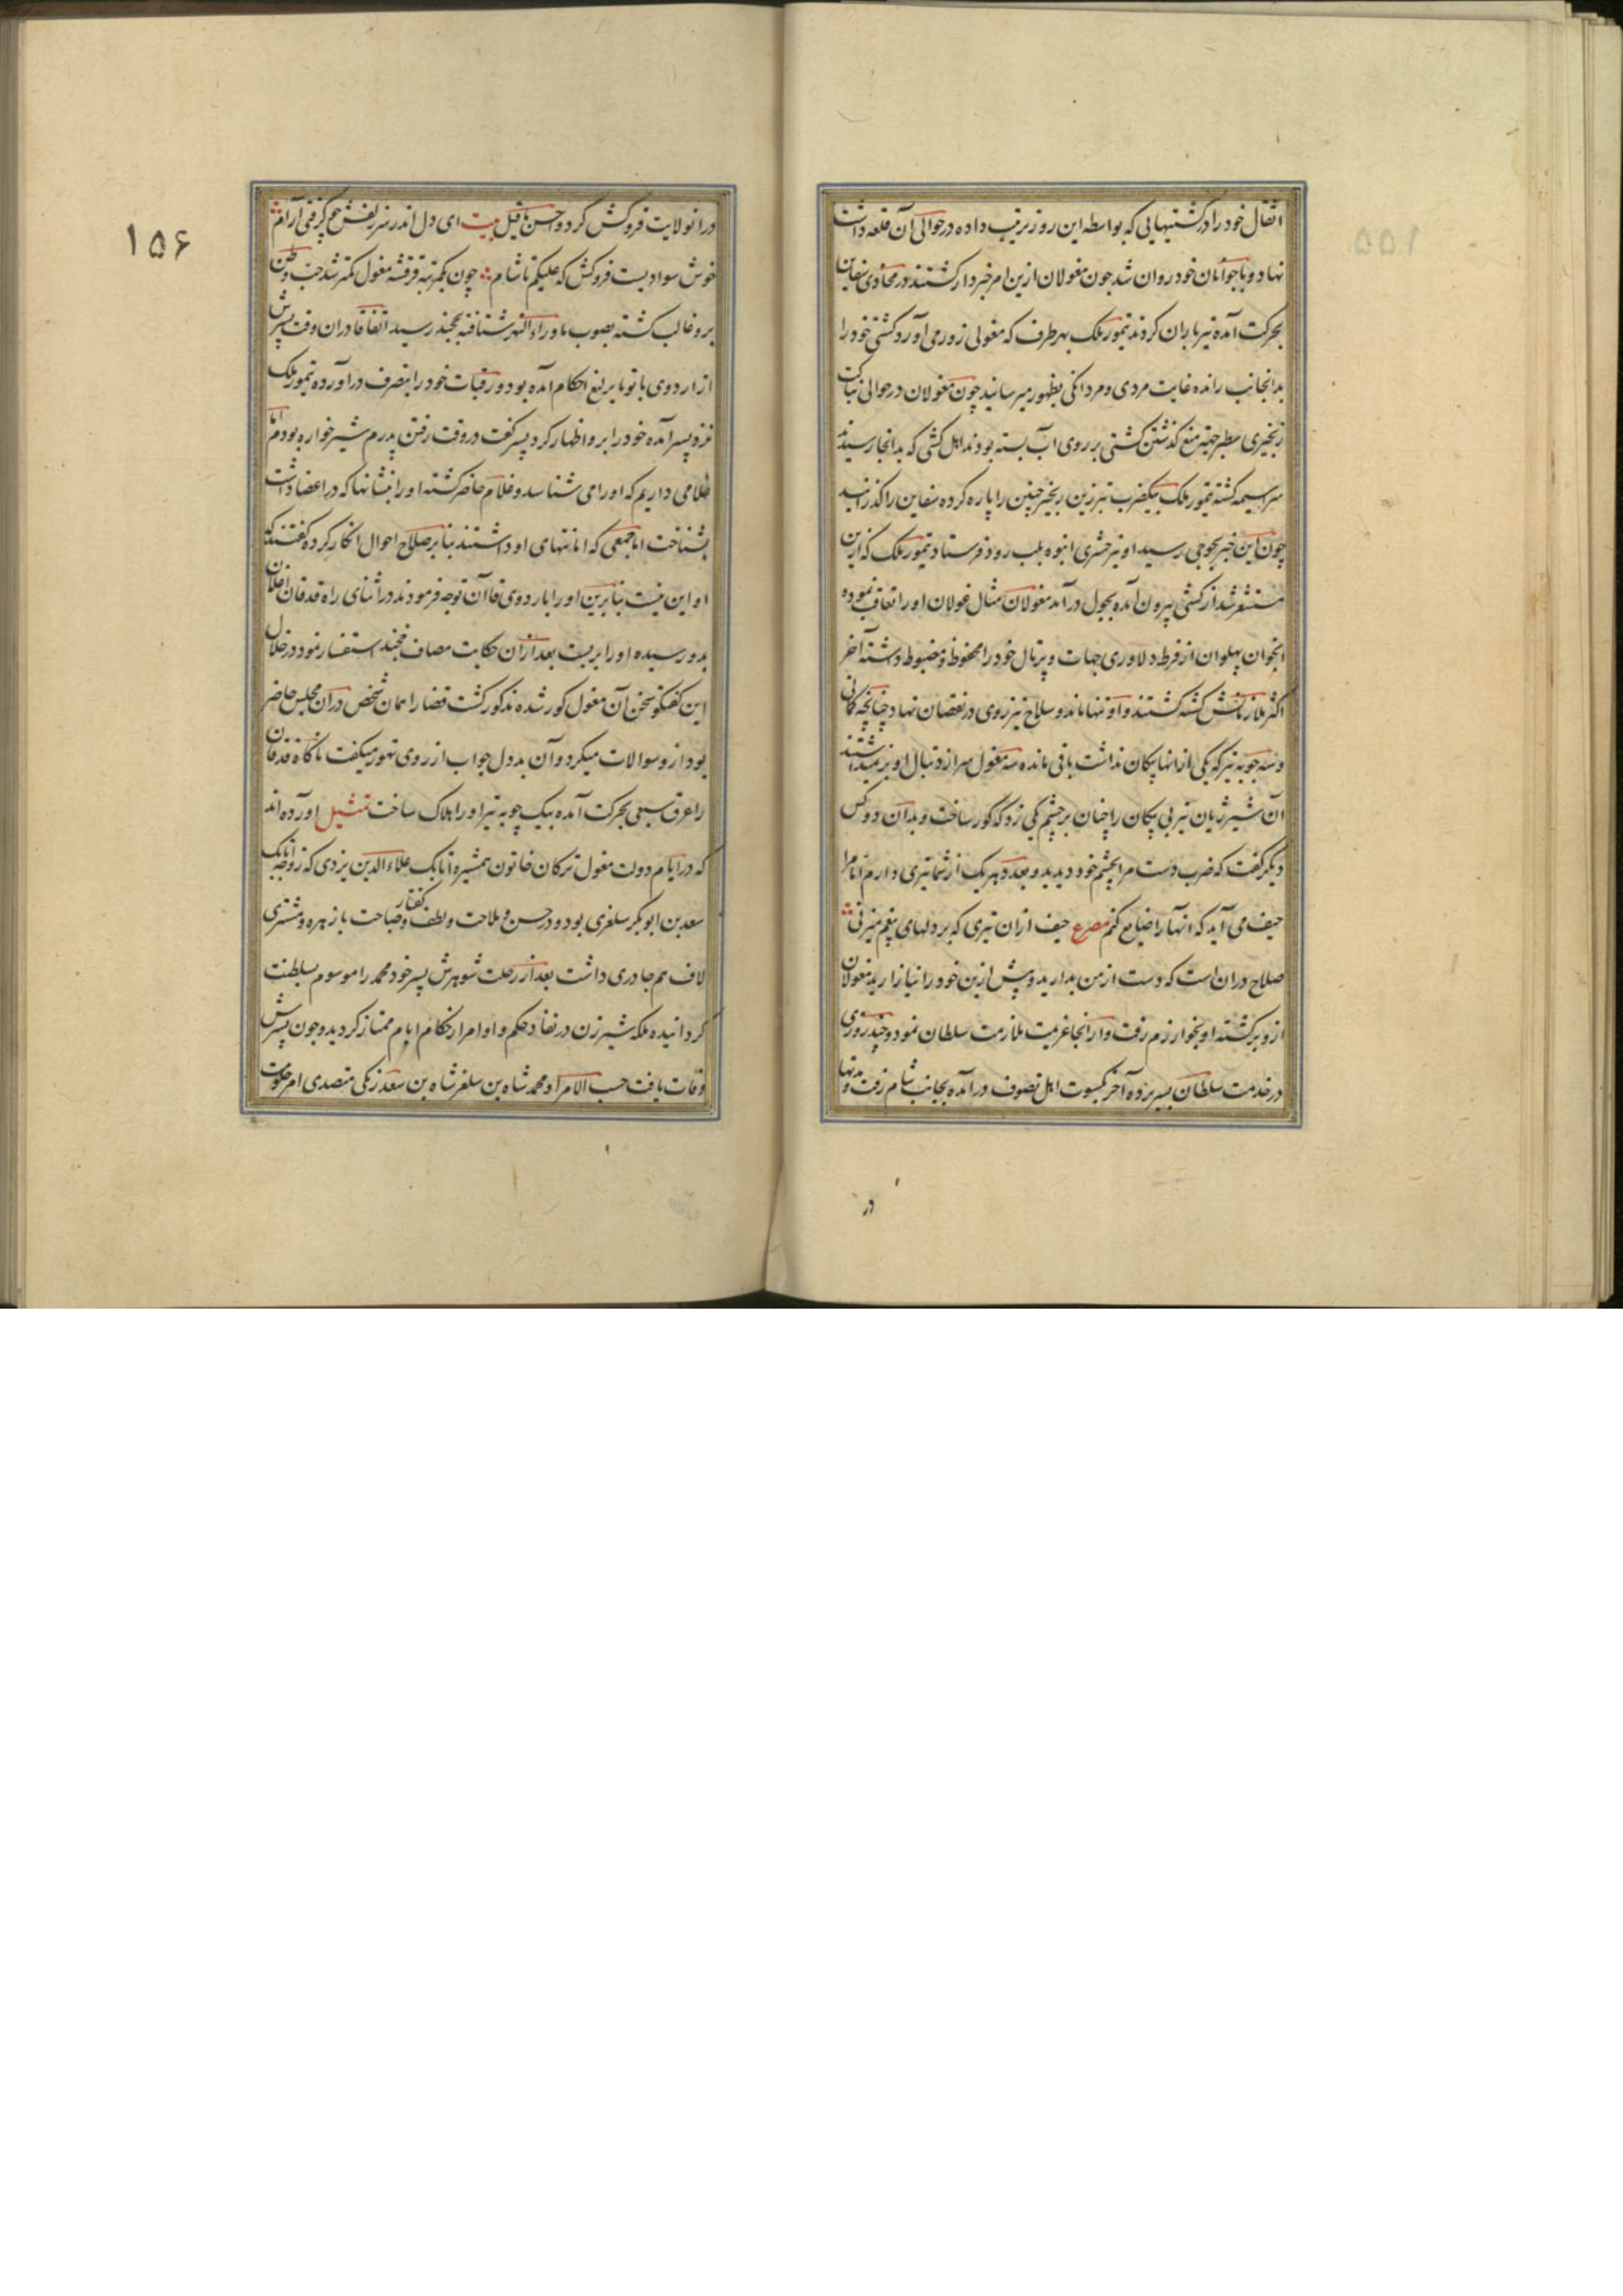 اثقال خود را در کشتیهایی که بواسطه این روز ترتیب داده در حوالی آن قلعه داشت
نهاد و با جوانان خود روان شد چون مغولان ازین امر خبردار کشتند در محاذی سفاین
بحرکت آمده تیرباران کردند تیمور ملک بهر طرف که مغولی زور می آورد کشتی خود را
بدانجانب رانده غایت مردی و مردانکی بظهور میرسانید چون مغولان در حوالی بناکت
زنجیری سطبر جهة منع کذشتن کشتی بر روی آب بسته بودند اهل کشتی که بدانجا رسیدند
سراسیمه کشته تیمور ملک بیکضرب تبرزین زنجیر چنین را پاره کرده سفاین را کذرانید
چون این خبر بجوجی رسید او نیز حشری انبوه بلب رود فرستاد تیمور ملک که ازین
مستشعر شد از کشتی بیرون آمده بچول درآمد مغولان مثال غولان او را تعاقب نموده
انجوان پهلوان از فرط دلاوری جهات و پرتال خود را محفوظ و مضبوط داشته آخر
اکثر ملازمانش کشته کشتند و او تنها ماند و سلاح نیز روی در نقصان نهاد چنانچه کمانی
و سه چوبه تیر که یکی از انها پیکان نداشت باقی مانده سه مغول سر از دنبال او بر نمیداشتند
آن شیر ژیان تیر بی پیکان را چنان بر چشم یکی زد که کور ساخت و بدان دو کس
دیکر کفت که ضرب دست مرا بچشم خود دیدید و بعدد هر یک از شما تیری دارم اما مرا
حیف می آید که انها را ضایع کنم مصرع حیف ازان تیری که بر دلهای بیغم میزنی
صلاح دران است که دست از من بدارید و بیش ازین خود را نیازارید مغولان
ازو برکشته او بخوارزم رفت و از انجا عزیمت ملازمت سلطان نمود و چند روزی
در خدمت سلطان بسر برده آخر بکسوت اهل تصوف درآمده بجانب شام رفت و مدتها
در
۱۵۶
در انولایت فروکش کرد و احسن ما قیل بیت ای دل اندر سر زلفش چو کرفتی آرام
خوش سوادیست فروکش که علیکم بالشام چون بمرتبه فرقشه مغول کمتر شد حب وطن
برو غالب کشته بصوب ماوراء النهر شتافته بخجند رسید اتفاقا دران وقت پسرش
از اردوی باتو با یرلیغ احکام آمده بود و رقبات خود را بتصرف درآورده تیمور ملک
نزد پسر آمده خود را برو اظهار کرد پسر کفت در وقت رفتن پدرم شیرخواره بودم اما
غلامی داریم که او را می شناسد و غلام حاضر کشته او را بنشانها که در اعضا داشت
بشناخت اما جمعی که امانتهای او داشتند بنا بر صلاح احوال انکار کرده کفتند که
او این نیست بنابرین او را باردوی قاآن توجه فرمودند در اثنای راه قدقان اغلان
بدو رسیده او را بربست بعد ازان حکایت مصاف خجند استفسار نمود در خلال
این کفتکو سخن آن مغول کور شده مذکور کشت قضا را همان شخص دران مجلس حاضر
بود ازو سوالات میکرد و آن بددل جواب از روی تهور میکفت ناکاه قدقان
را عرق سبعی بحرکت آمده بیک چوبه تیر او را هلاک ساخت تمثیل آورده اند
که در ایام دولت مغول ترکان خاتون همشیره اتابک علاء الدین یزدی که زوجه اتابک
سعد بن ابوبکر سلغری بود و در حسن و ملاحت و لطف کفتار و صباحت با زهره و مشتری
لاف هم چادری داشت بعد از رحلت شوهرش پسر خود محمد را موسوم بسلطنت
کردانیده ملکه شیر زن در نفاد حکم و اوامر از حکام ایام ممتاز کردید و چون پسرش
وفات یافت حسب الامر او محمد شاه بن سلغر شاه بن سعد زنکی متصدی امر حکومت